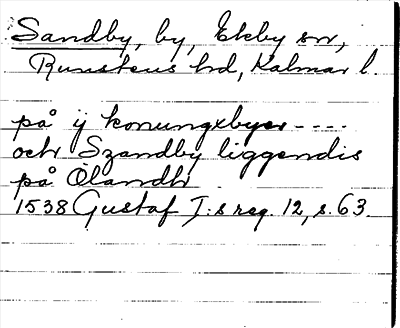 Sandby, by, Ekby sn,
Runstens hd, Kalmar l.
på ij konungxbyer ----
och Szandby liggendis
på Ölandh
1538 Gustaf I:s reg. 12, s. 63.